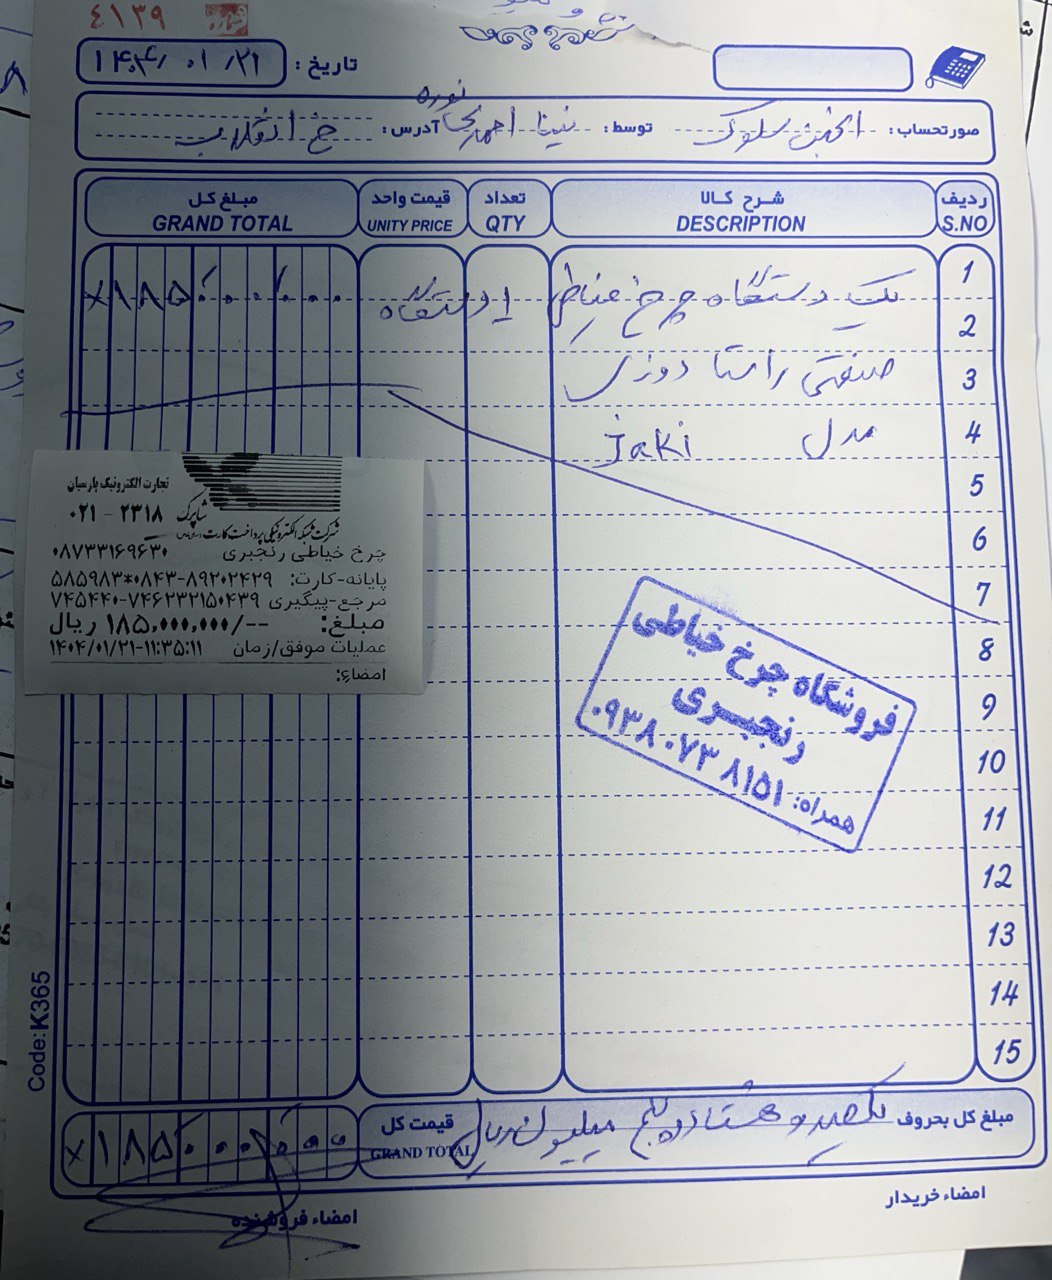 شماره ۴۱۳۹
تاریخ : ۱۴۰۴/۰۱/۲۱
صورتحساب : انجمن سلوک توسط : آدرس : خ انقلاب
ردیف شرح کالا تعداد قیمت واحد مبلغ کل
S.NO DESCRIPTION QTY UNITY PRICE GRAND TOTAL
1 یک دستگاه چرخ خیاطی ۱ دستگاه ×۱۸۵۰۰۰/۰۰۰
2
3 صنعتی راسته دوزی
4 مدل jaki
5
6
7
8
9
10
11
12
13
14
15
تجارت الکترونیک پارسیان
شاپرک ۰۲۱ - ۲۳۱۸
شرکت شبکه الکترونیکی پرداخت کارت
چرخ خیاطی رنجبری ۰۸۷۳۳۱۶۹۶۳۰
پایانه-کارت: ۵۸۵۹۸۳*۰۸۴۳-۸۹۲۰۲۴۲۹
مرجع-پیگیری ۷۴۵۴۴۰-۷۴۶۲۳۲۱۵۰۴۳۹
مبلغ: ۱۸۵,۰۰۰,۰۰۰/-- ریال
عملیات موفق/زمان ۱۴۰۴/۰۱/۲۱-۱۱:۳۵:۱۱
امضاء:
فروشگاه چرخ خیاطی
رنجبری
همراه: ۰۹۳۸۰۷۳۸۱۵۱
Code:K365
مبلغ کل بحروف یکصد و هشتاد و پنج میلیون ریال قیمت کل ×۱۸۵۰۰۰۰۰۰
GRAND TOTAL
امضاء خریدار امضاء فروشنده